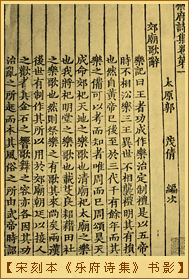 樂府詩集卷第一
太原郭 茂倩 編次
郊廟歌辭
樂記曰王者功成作樂治定制禮是以五帝殊
時不相沿樂三王異世不相襲禮明其有損益
也然自黃帝已後至於三代千有餘年而其禮
樂之備可以考而知者唯周而已周頌昊天有
成命郊祀天地之樂歌也清廟祀太廟之樂歌
也我將祀明堂之樂歌也載芟良耜藉田社稷
之樂歌也然則祭樂之有歌其來尚矣兩漢已
後世有制作其所以用於郊廟朝廷以接人神
之歡者其金石之響歌舞之容亦各因其功業
治亂之所起而本其風俗之所由武帝時詔
【宋刻本《乐府诗集》书影】